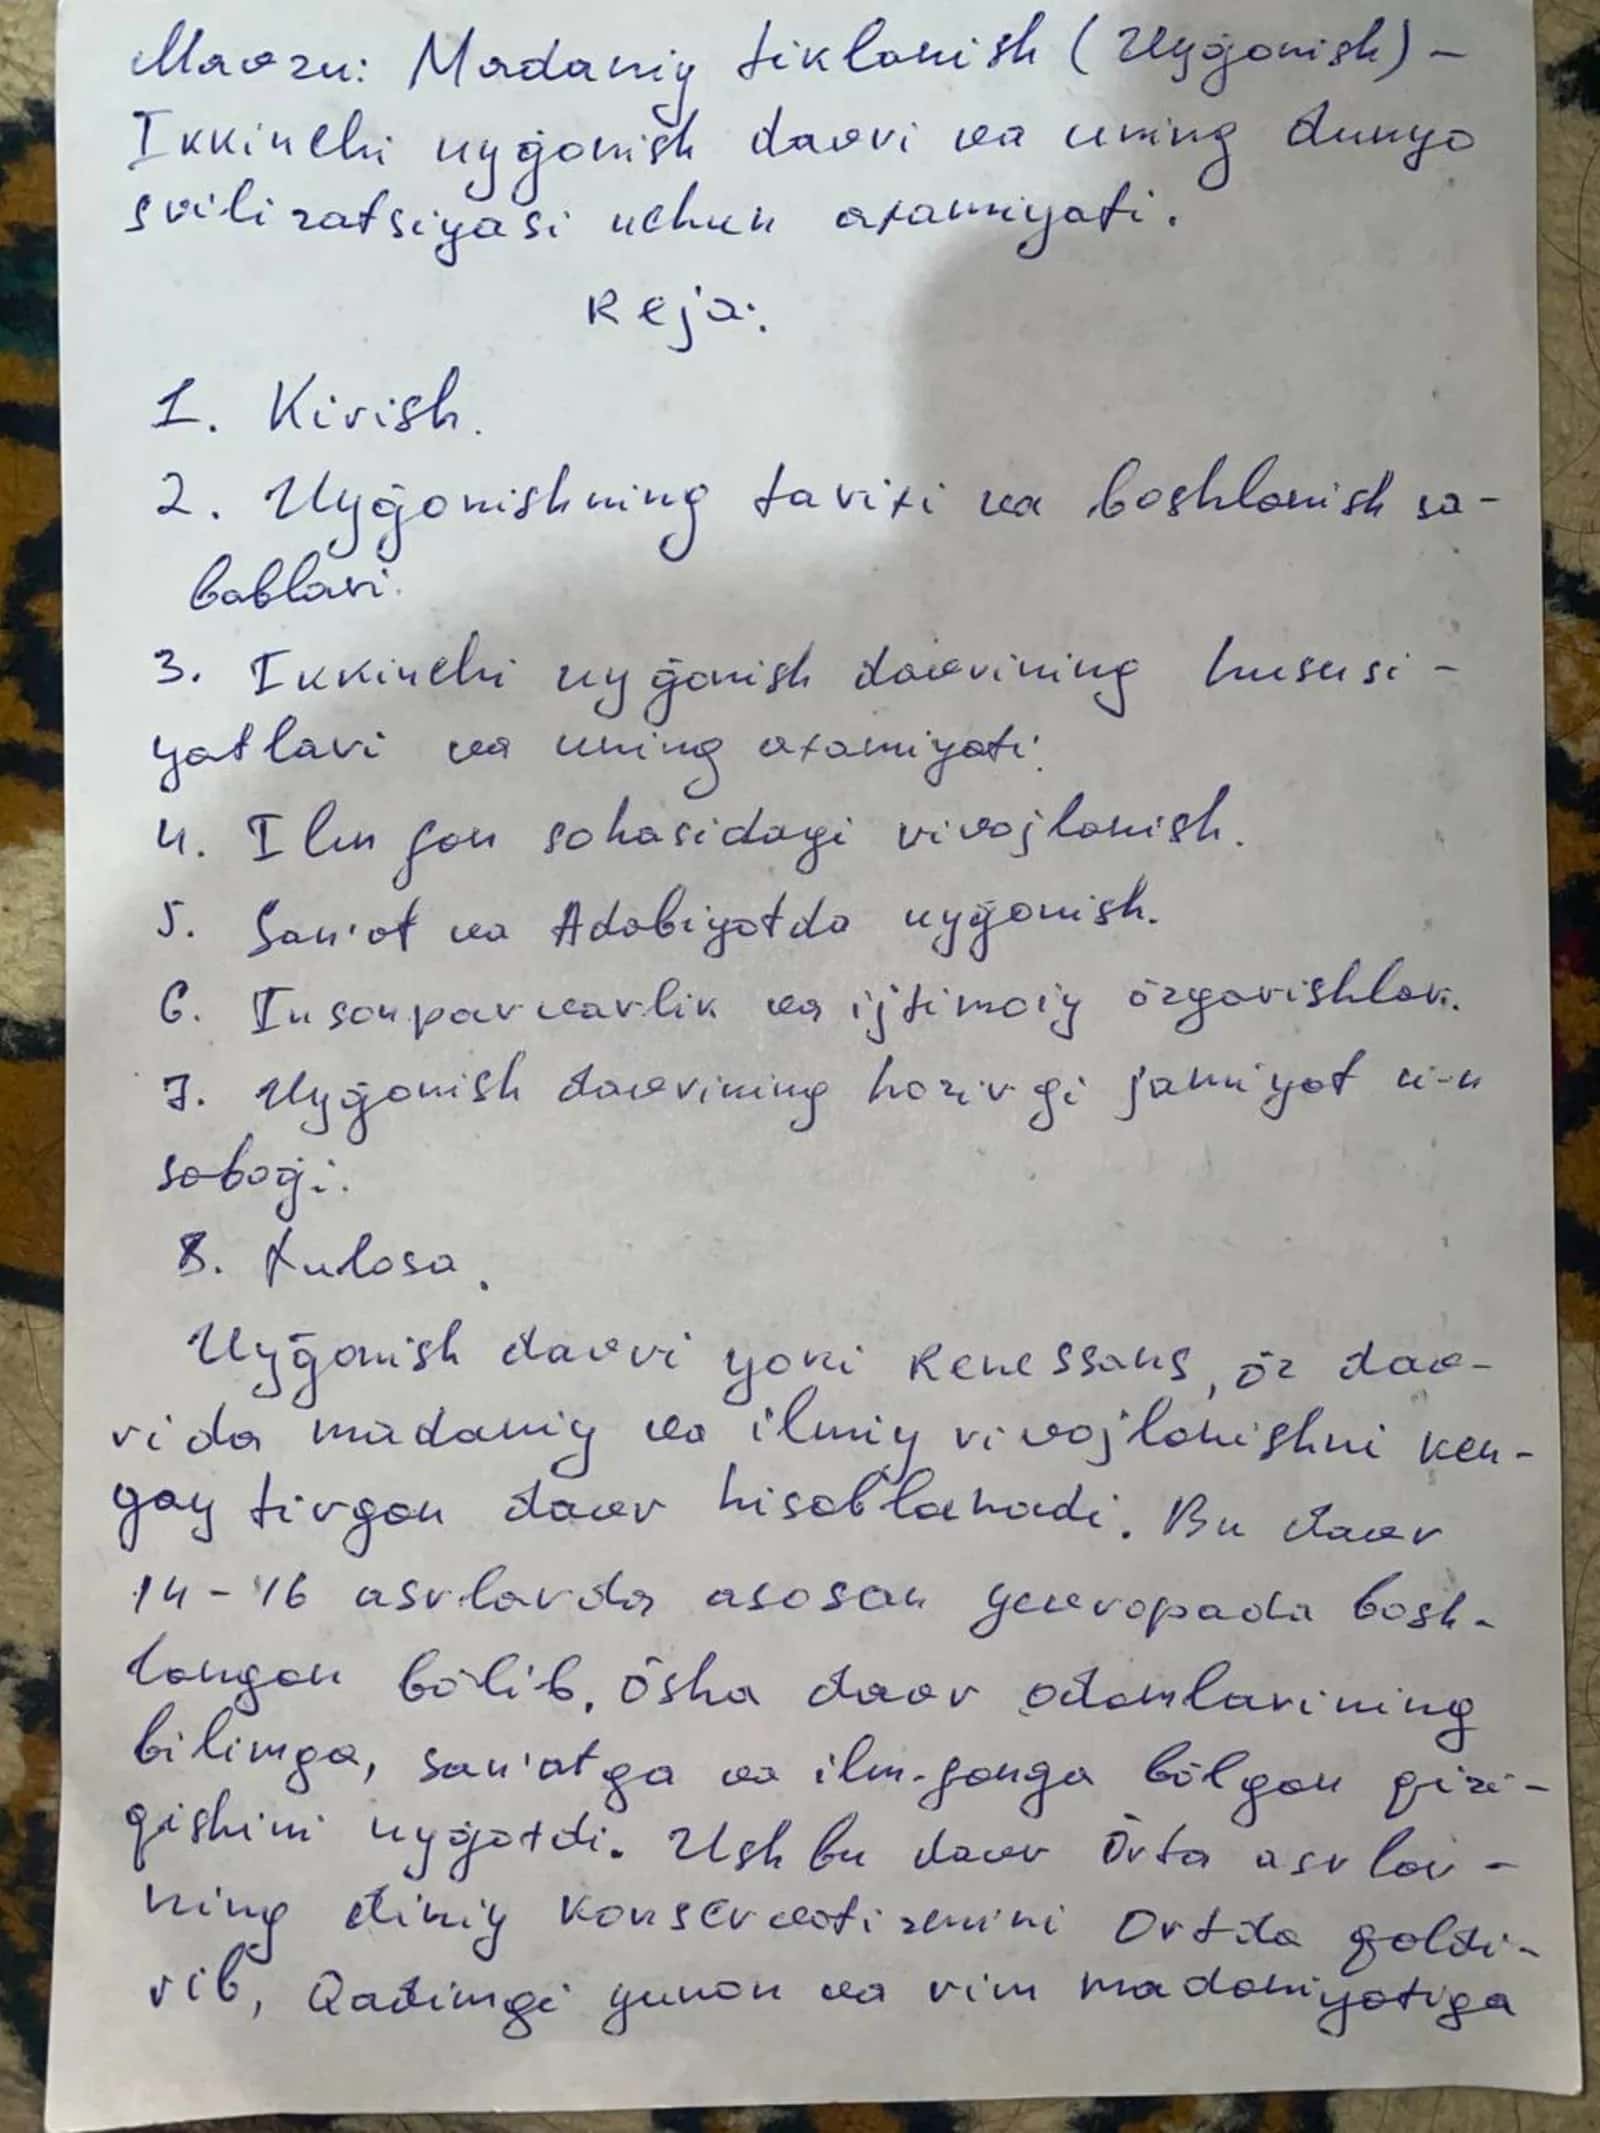 Mavzu: Madaniy tiklanish (Uyg'onish) -
Ikkinchi uyg'onish davri va uning dunyo
svilizatsiyasi uchun axamiyati.
Reja:
1. Kirish.
2. Uyg'onishning tarixi va boshlanish sa-
bablari.
3. Ikkinchi uyg'onish davrining hususi-
yatlari va uning axamiyati.
4. Ilm fan sohasidagi rivojlanish.
5. San'at va Adabiyotda uyg'onish.
6. Insonparvarlik va ijtimoiy ōzgarishlar.
7. Uyg'onish davrining hozirgi jamiyat u-n
sabog'i.
8. Xulosa.
Uyg'onish davri yoki Renessans, ōz dav-
rida madaniy va ilmiy rivojlanishni ken-
gaytirgan davr hisoblanadi. Bu davr
14-16 asrlarda asosan yevropada bosh-
langan bōlib, ōsha davr odamlarining
bilimga, san'atga va ilm-fanga bōlgan qizi-
qishini uyg'otdi. Ushbu davr Ōrta asrlar-
ning diniy konservatizmini Ortda qoldi-
rib, Qadimgi yunon va rim madaniyatiga